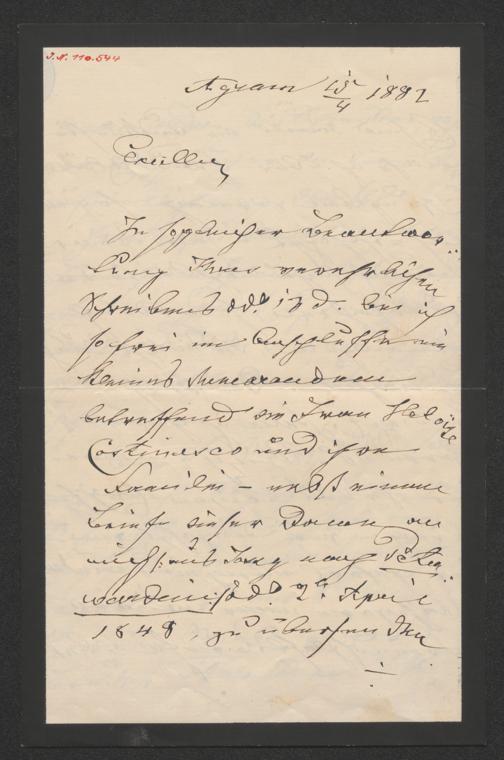 J.N. 110.544
Agram 15/4 1882
Excellenz
In höflicher Beantwor-
tung Ihres verehrlichen
Schreibens dd. 13 d. bin ich
so frei im Anschlusse ein
kleines Memorandum
betreffend die Frau Heloïse
Cortinesco und ihre
Familie – nebst einem
Briefe dieser Dame an
mich aus nach Peter-
wardein dd. 2ten April
1848, zu übersenden